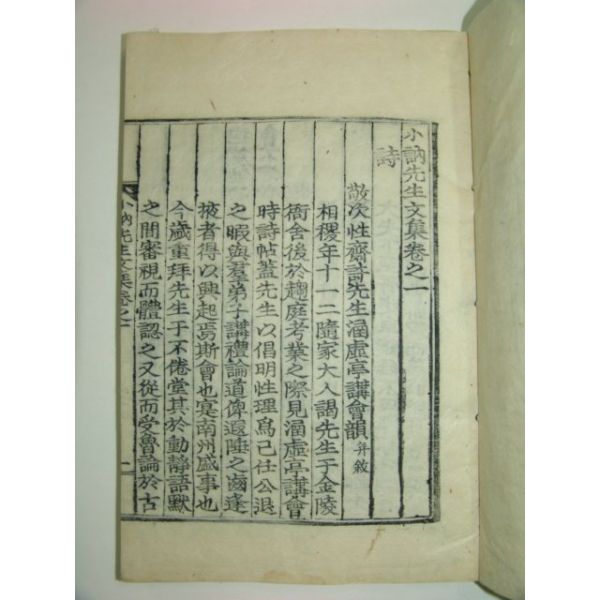 小訥先生文集卷之一
詩
敬次性齋許先生涵虛亭講會韻 并敘
相稷年十一二隨家大人謁先生于金陵
衙舍後於趨庭考業之際見涵虛亭講會
時詩帖蓋先生以倡明性理爲己任公退
之暇與羣弟子講禮論道俾遐陲之逢
掖者得以興起焉斯會也寔南州盛事也
今歲重拜先生于不倦堂其於動靜語默
之間審視而體認之又從而受魯論於古
小訥先生文集卷之一
一